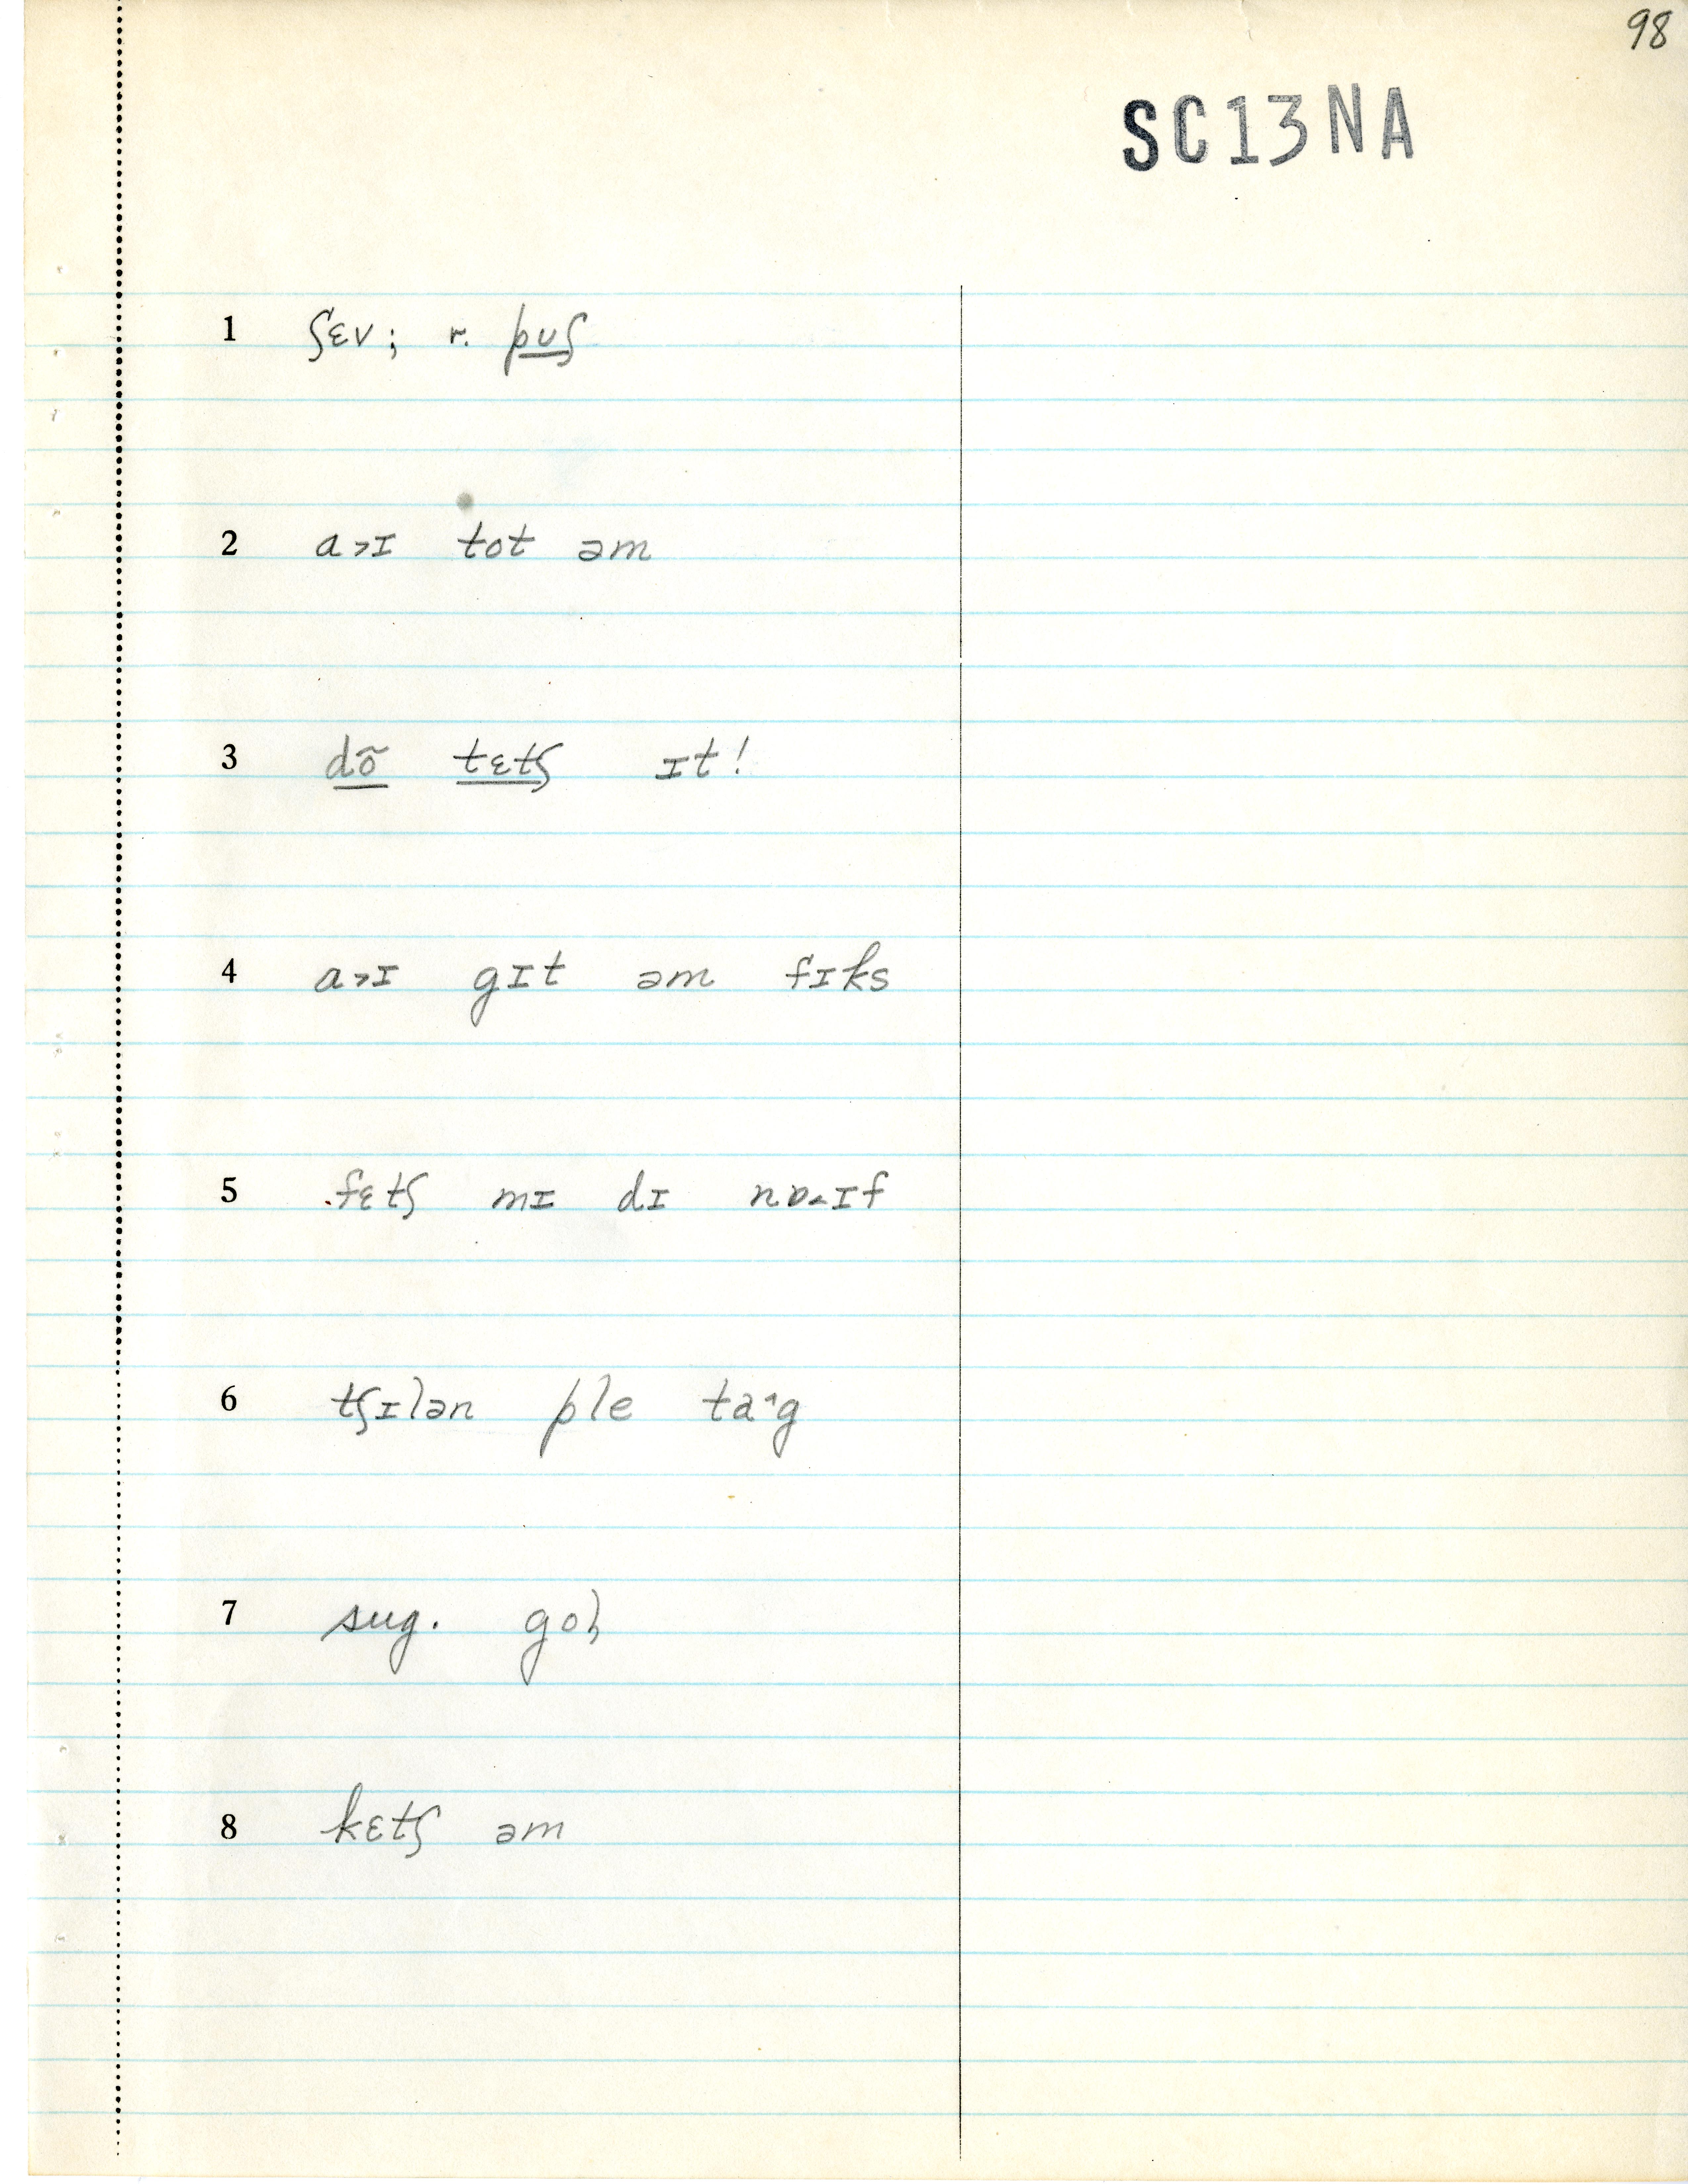 98
SC13NA
1 ʃɛv; r. pʊʃ
2 a˃ɪ tot əm
3 dõ tɛtʃ ɪt!
4 a˃ɪ gɪt əm fɪks
5 fɛtʃ mɪ dɪ nɒ˂ɪf
6 tʃɪlən ple ta^g
7 sug.
8 kɛtʃ əm